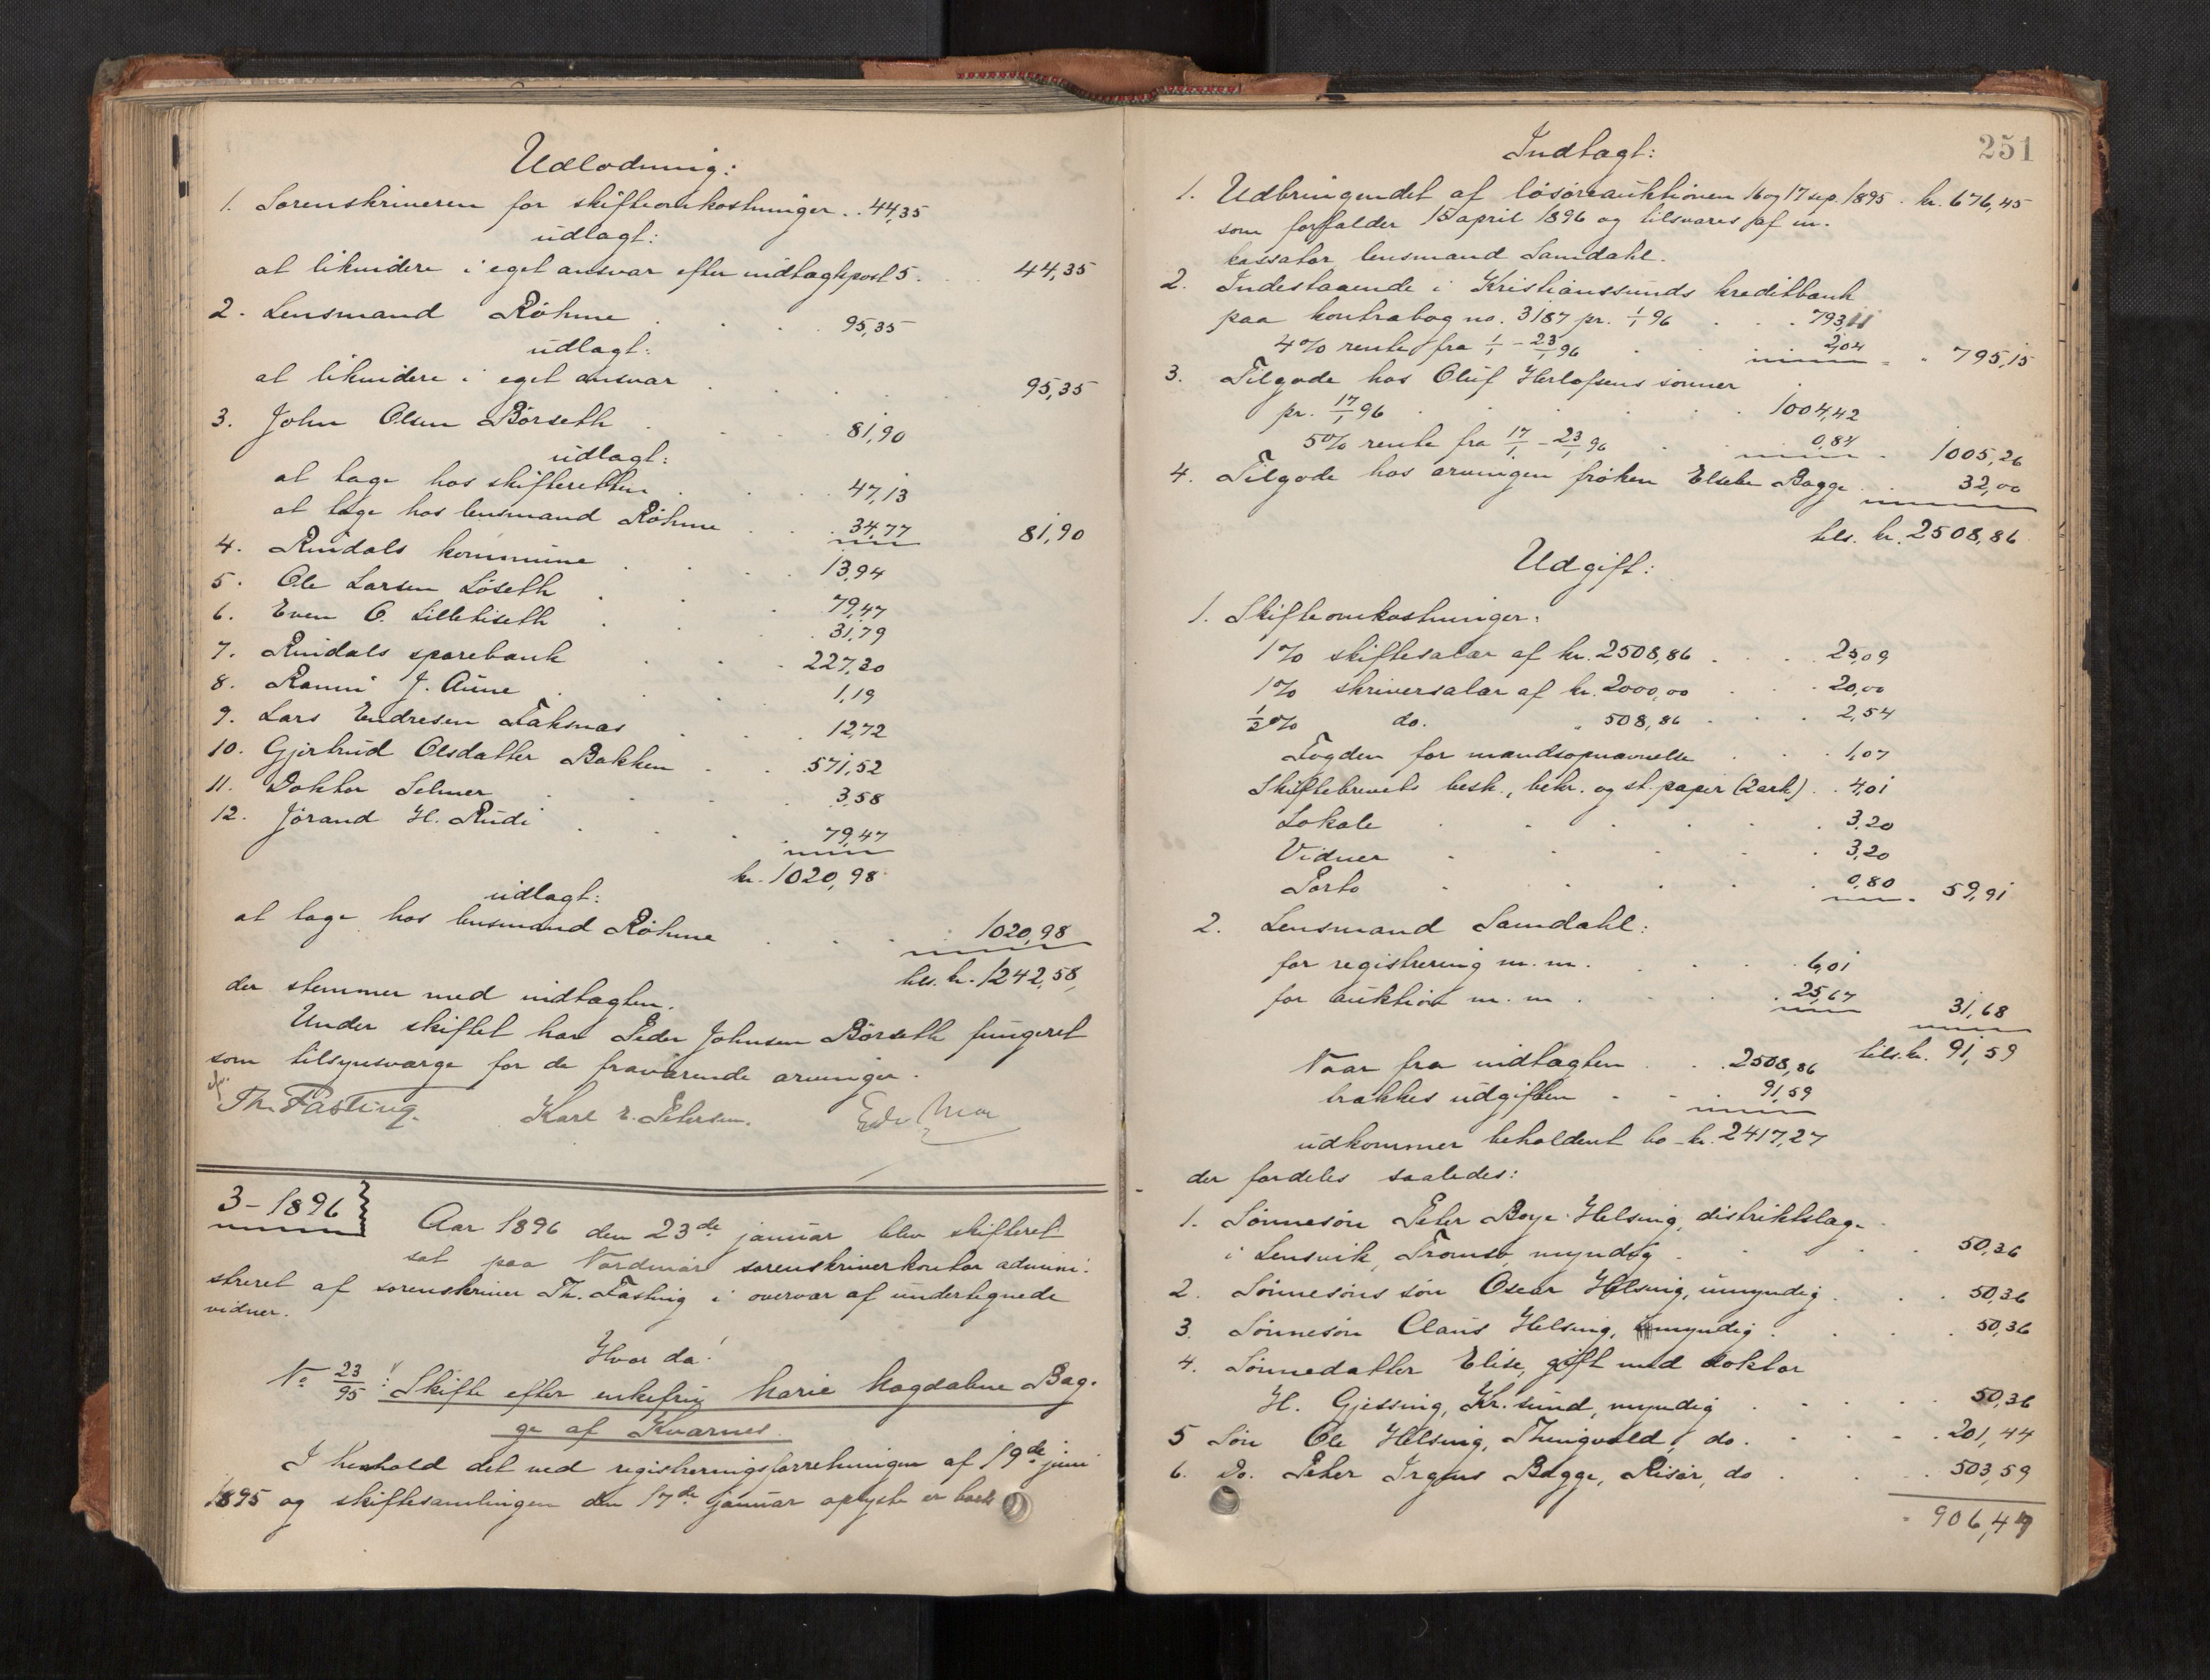 Udlodning:
1. Sorenskriveren for skifteomkostninger . . 44,35
udlagt:
at likvidere i eget ansvar efter indtægtspost 5 . . 44,35
2. Lensmand Röhme . . . 95,35
udlagt:
at likvidere i eget ansvar . . . 95,35
3. John Olsen Börseth . . . 81,90
udlagt:
at tage hos skifteretten . . . 47,13
at tage hos lensmand Röhme . . 34,77 81,90
4. Rindals kommune . . . 13,94
5. Ole Larsen Löseth . . . 79,47
6. Even O. Lillebiseth . . . 31,79
7. Rindals sparebank . . . 227,30
8. Ranni J. Aune . . . 1,19
9. Lars Endresen Faksnæs . . 12,72
10. Gjertrud Olsdatter Bakken . . 571,52
11. Doktor Selmer . . . 3,58
12. Jörand H. Rudi . . . 79,47
kr. 1020,98
udlagt:
at tage hos lensmand Röhme . . . 1020,98
tils. kr. 1242,58,
der stemmer med indtægten.
Under skiftet har Peder Johnsen Börseth fungeret
som tilsynsværge for de fraværende arvinger.
Th. Fasting. Karl E. Petersen.
3-1896
Aar 1896 den 23de januar blev skifteret
sat paa Nordmör sorenskriverkontor admini-
streret af sorenskriver Th. Fasting i overvær af undertegnede
vidner.
Hvor da!
No 23/95: Skifte efter enkefru Marie Magdalene Bag-
ge af Kvarnes.
I henhold det ved registreringsforretningen af 19de juni
1895 og skiftesamlingen den 17de januar oplyste er boets
251
Indtægt:
1. Udbringendet af lösöreauktionen 16 og 17 sep. 1895 . kr. 676,45
som forfalder 15 april 1896 og tilsvares af in-
kassator lensmand Samdahl.
2. Indestaaende i Kristianssunds kreditbank
paa kontrabog no. 3187 pr. 1/1 96 . . . 793,11
4% rente fra 1/1 - 23/1 96 . 2,04 - " 795,15
3. Tilgode hos Oluf Herlofsens sönner
pr. 17/1 96 . . . 1004,42
5% rente fra 17/1 - 23/1 96 . . 0,84 . 1005,26
4. Tilgode hos arvingen fröken Elsebe Bagge . . 32,00
tils. kr. 2508,86
Udgift:
1. Skifteomkostninger:
1% skiftesalær af kr. 2508,86 . . . 25,09
1% skriversalær af kr. 2000,00 . . . 20,00
1/2% do. " 508,86 . . . 2,54
Fogden for mandsopnævnelse . . 1,07
Skiftebrevets besk., bekr. og st. papir (2 ark) . . 4,01
Lokale . . . 3,20
Vidner . . . 3,20
Porto . . . 0,80 - 59,91
2. Lensmand Samdahl:
for registrering m. m. . . . 6,01
for auktion m. m. . . . 25,67 31,68
tils. kr. 91,59
Naar fra indtægten . . 2508,86
trækkes udgiften - - 91,59
udkommer beholdent bo - kr. 2417,27
der fordeles saaledes:
1. Sönnesön Peter Boye Helsing, distriktslæge
i Lensvik, Tromsö, myndig . . . 50,36
2. Sönnesöns sön Oscar Helsing, umyndig . . . 50,36
3. Sönnesön Claus Helsing, myndig . . . 50,36
4. Sönnedatter Elise, gift med doktor
H. Gjessing, Kr.sund, myndig . . . 50,36
5 Sön Ole Helsing, Thingvold, do. . . . 201,44
6. Do. Peter Irgens Bagge, Risör, do . . . 503,59
906,47